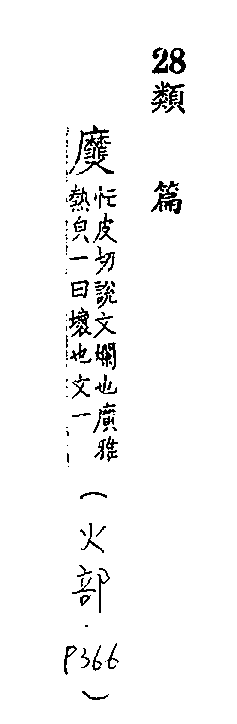 28類篇
䊳忙皮切說文爛也廣雅
熱皃一曰壞也文一
(火部.P366)